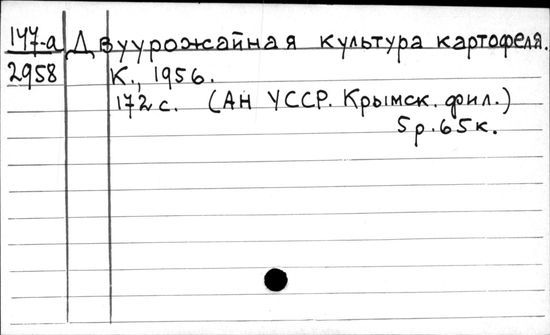 147-а Двуурожайная культура картофеля.
2958 К., 1956.
172 с. (АН УССР. Крымск. фил.)
5 р. 65 к.